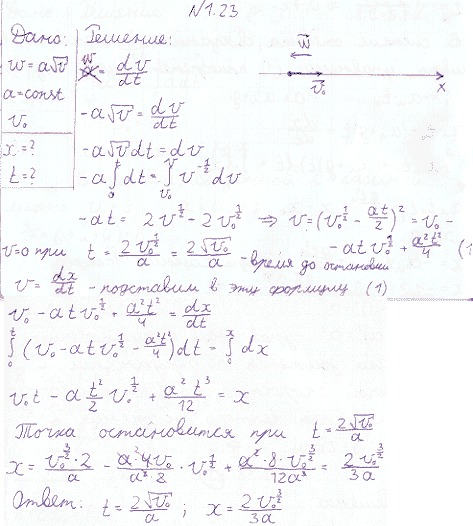 N1.23
Дано: Решение:
w = a√v w = dv/dt
a = const
v₀
x = ?
t = ?
w⃗
v⃗₀ x
-a√v = dv/dt
-a√v dt = dv
-a∫₀ᵗ dt = ∫ᵥ₀ᵛ v^(-1/2) dv
-at = 2v^(1/2) - 2v₀^(1/2) ⇒ v = (v₀^(1/2) - at/2)² = v₀ -
- at v₀^(1/2) + a²t²/4 (1
v=0 при t = 2v₀^(1/2)/a = 2√v₀/a - время до остановки
v = dx/dt - подставим в эту формулу (1)
v₀ - at v₀^(1/2) + a²t²/4 = dx/dt
∫₀ᵗ (v₀ - at v₀^(1/2) - a²t²/4) dt = ∫₀ˣ dx
v₀t - a t²/2 v₀^(1/2) + a²t³/12 = x
Точка остановится при t = 2√v₀/a
x = v₀^(3/2)·2/a - a²4v₀/a³2 · v₀^(1/2) + a²·8·v₀^(3/2)/12a³ = 2v₀^(3/2)/3a
Ответ: t = 2√v₀/a ; x = 2v₀^(3/2)/3a